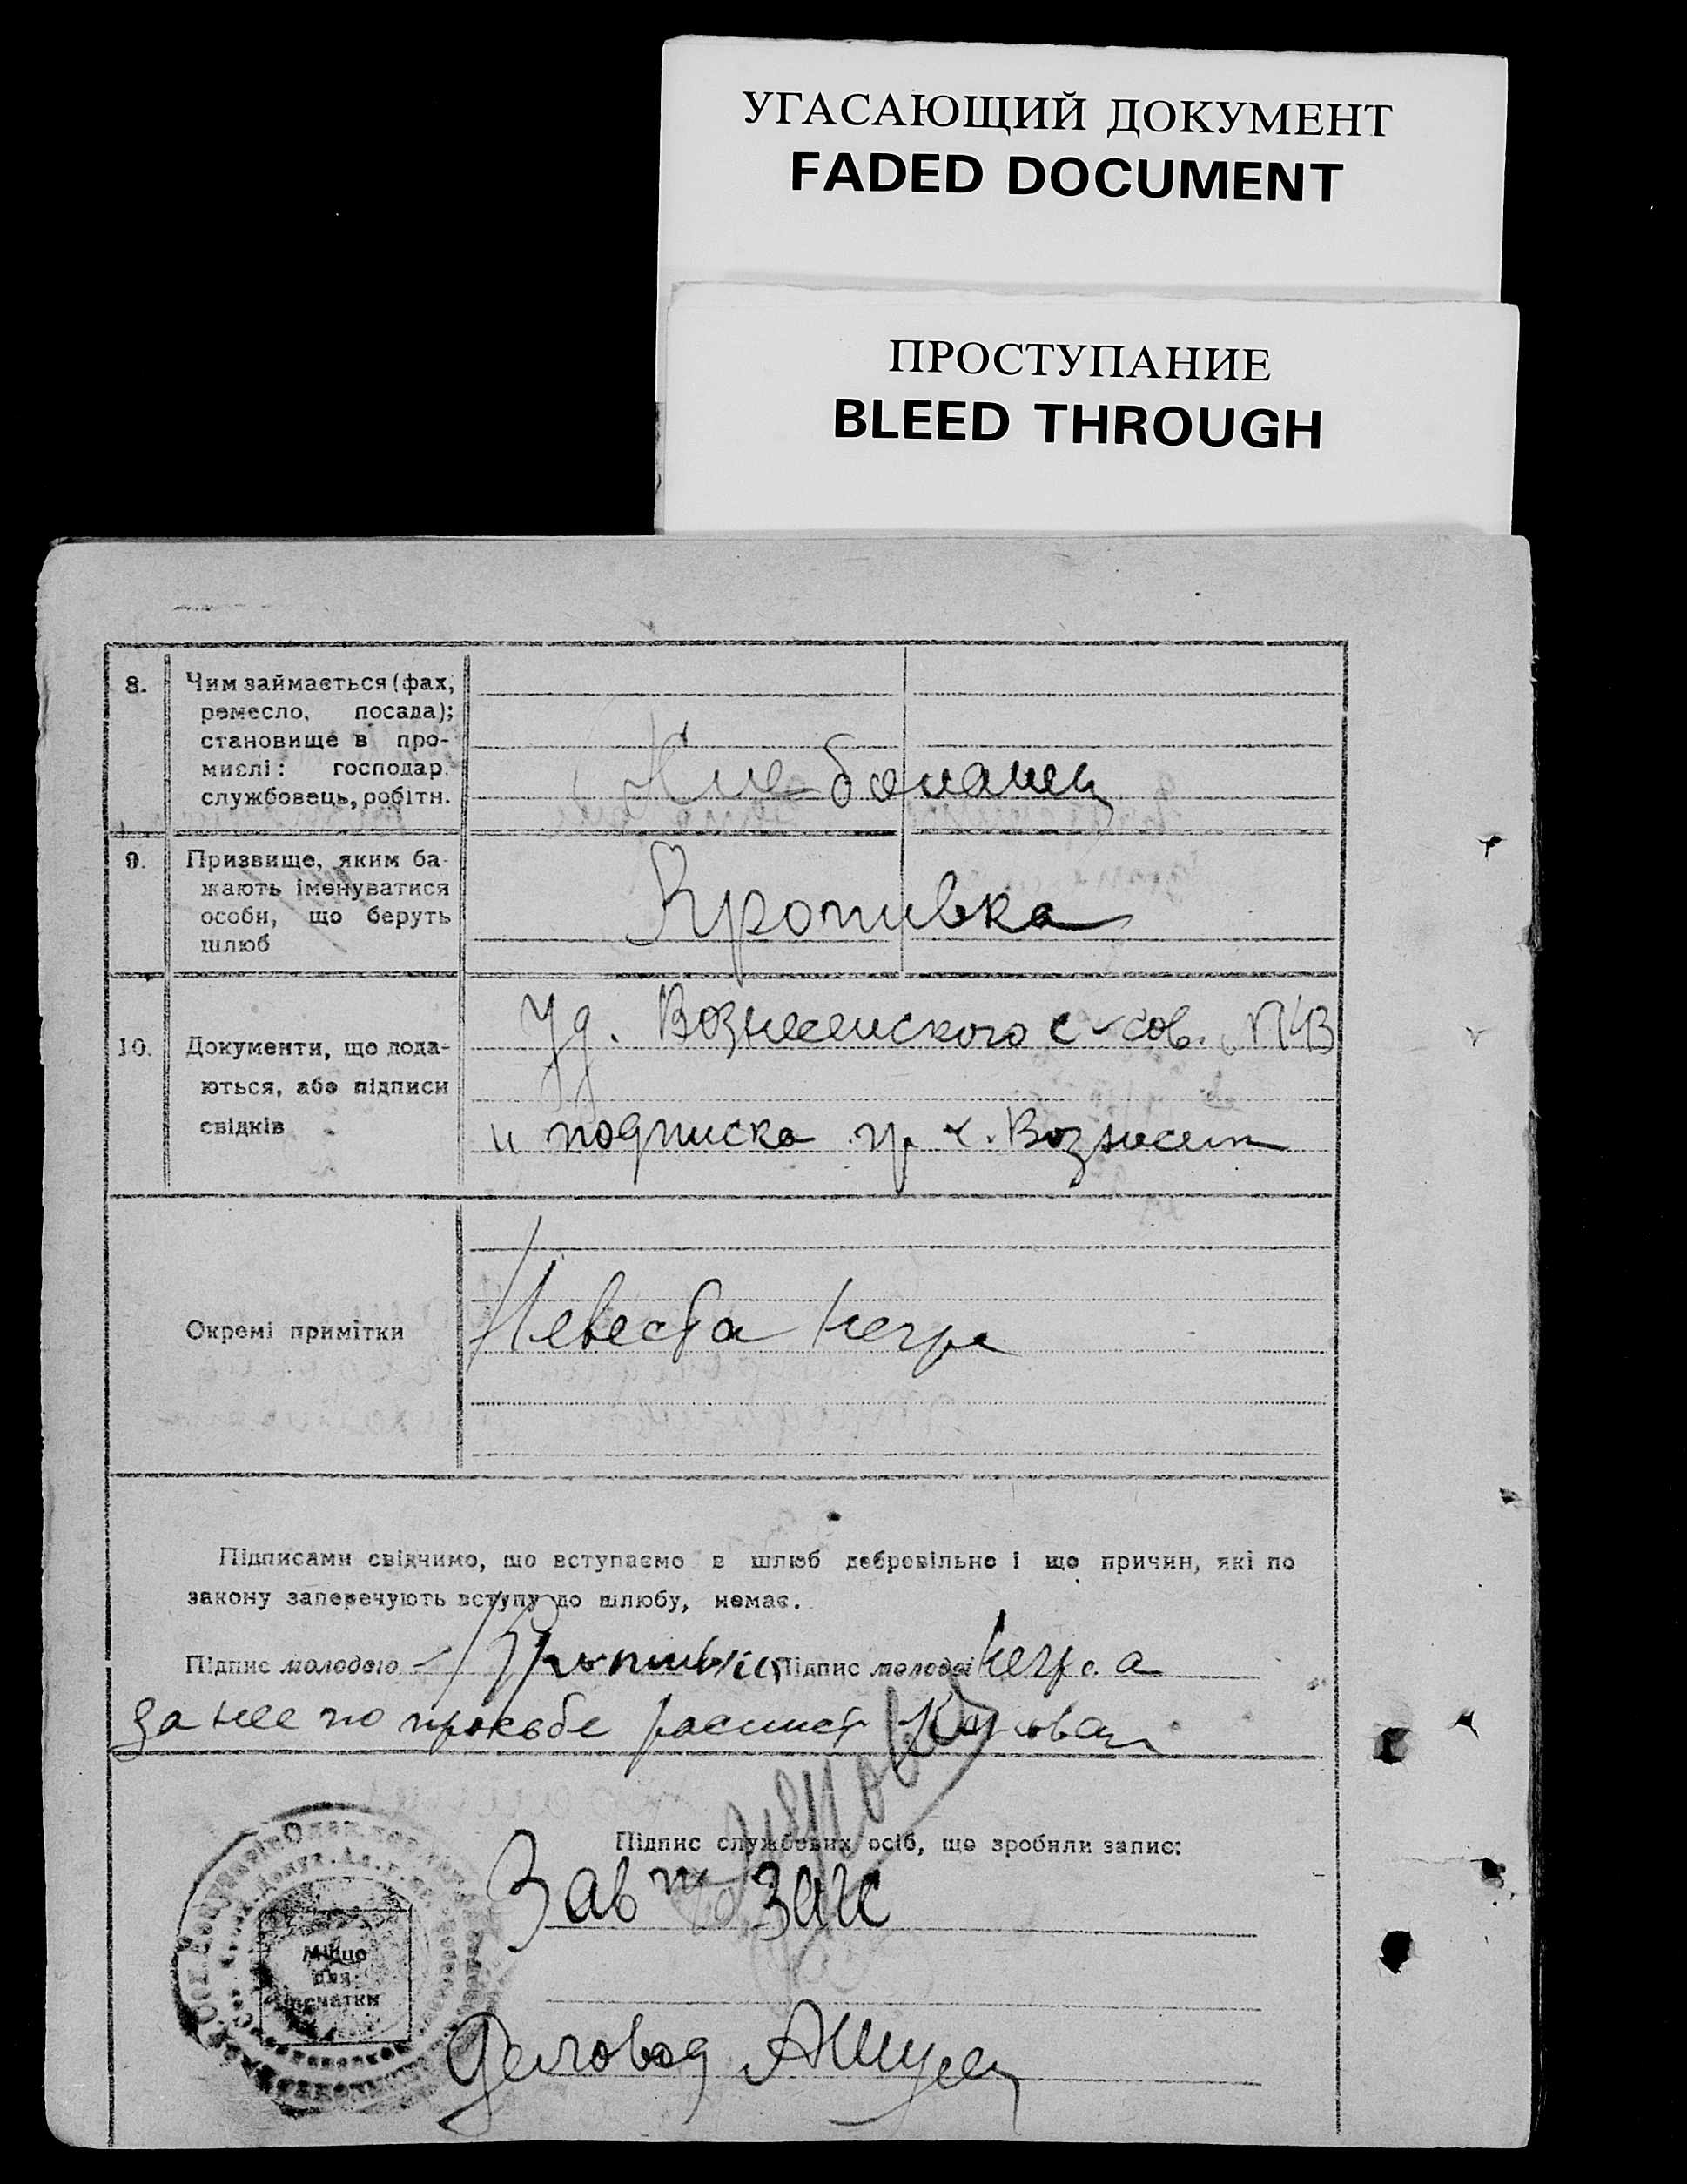 УГАСАЮЩИЙ ДОКУМЕНТ
FADED DOCUMENT
ПРОСТУПАНИЕ
BLEED THROUGH
8. Чим займається (фах,
ремесло, посада);
становище в про-
мислі: господар.
службовець, робітн.
9. Призвище, яким ба-
жають іменуватися
особи, що беруть
шлюб
Кропивка
10. Документи, що дода-
ються, або підписи
свідків
Уд. Вознесенского с-сов.
и подписка гр. с. Вознесен
Окремі примітки
Невеста негр
Підписами свідчимо, що вступаємо в шлюб добровільно і що причин, які по
закону заперечують вступу до шлюбу, немає.
Підпис молодого Підпис молодої негр. а
за нее по просьбе распист
Підпис службових осіб, що зробили запис:
Зав ЗАГС
Місце
для
печатки
Деловод